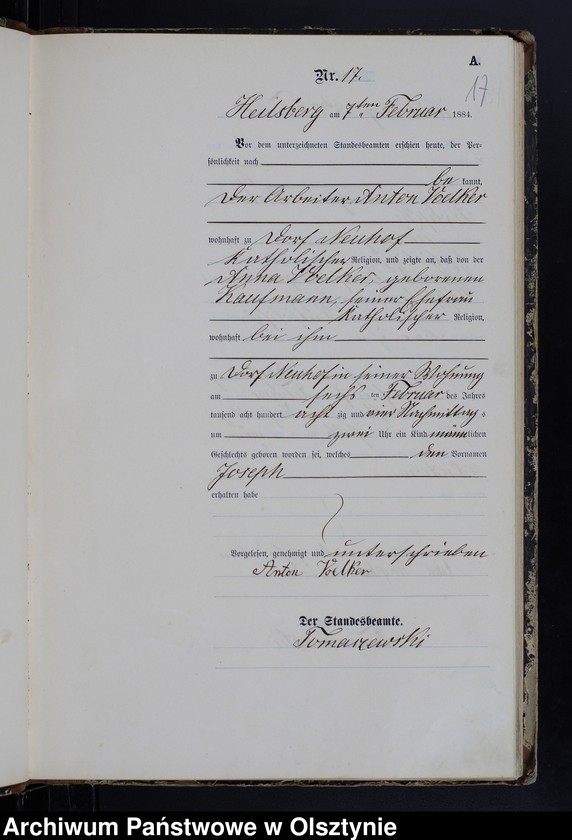 A.
Nr. 17.
17
Heilsberg am 7ten Februar 1884.
Vor dem unterzeichneten Standesbeamten erschien heute, der Per-
sönlichkeit nach
be kannt,
Der Arbeiter Anton Voelker
wohnhaft zu Dorf Neuhof
Katholischer Religion, und zeigte an, daß von der
Anna Voelker, geborenen
Kaufmann, seiner Ehefrau
Katholischer Religion,
wohnhaft bei ihm
zu Dorf Neuhof in seiner Wohnung
am sechs ten Februar des Jahres
tausend acht hundert acht zig und vier Nachmittag s
um zwei Uhr ein Kind männlichen
Geschlechts geboren worden sei, welches den Vornamen
Joseph
erhalten habe
Vorgelesen, genehmigt und unterschrieben
Anton Völker
Der Standesbeamte.
Tomaszewski
Archiwum Państwowe w Olsztynie